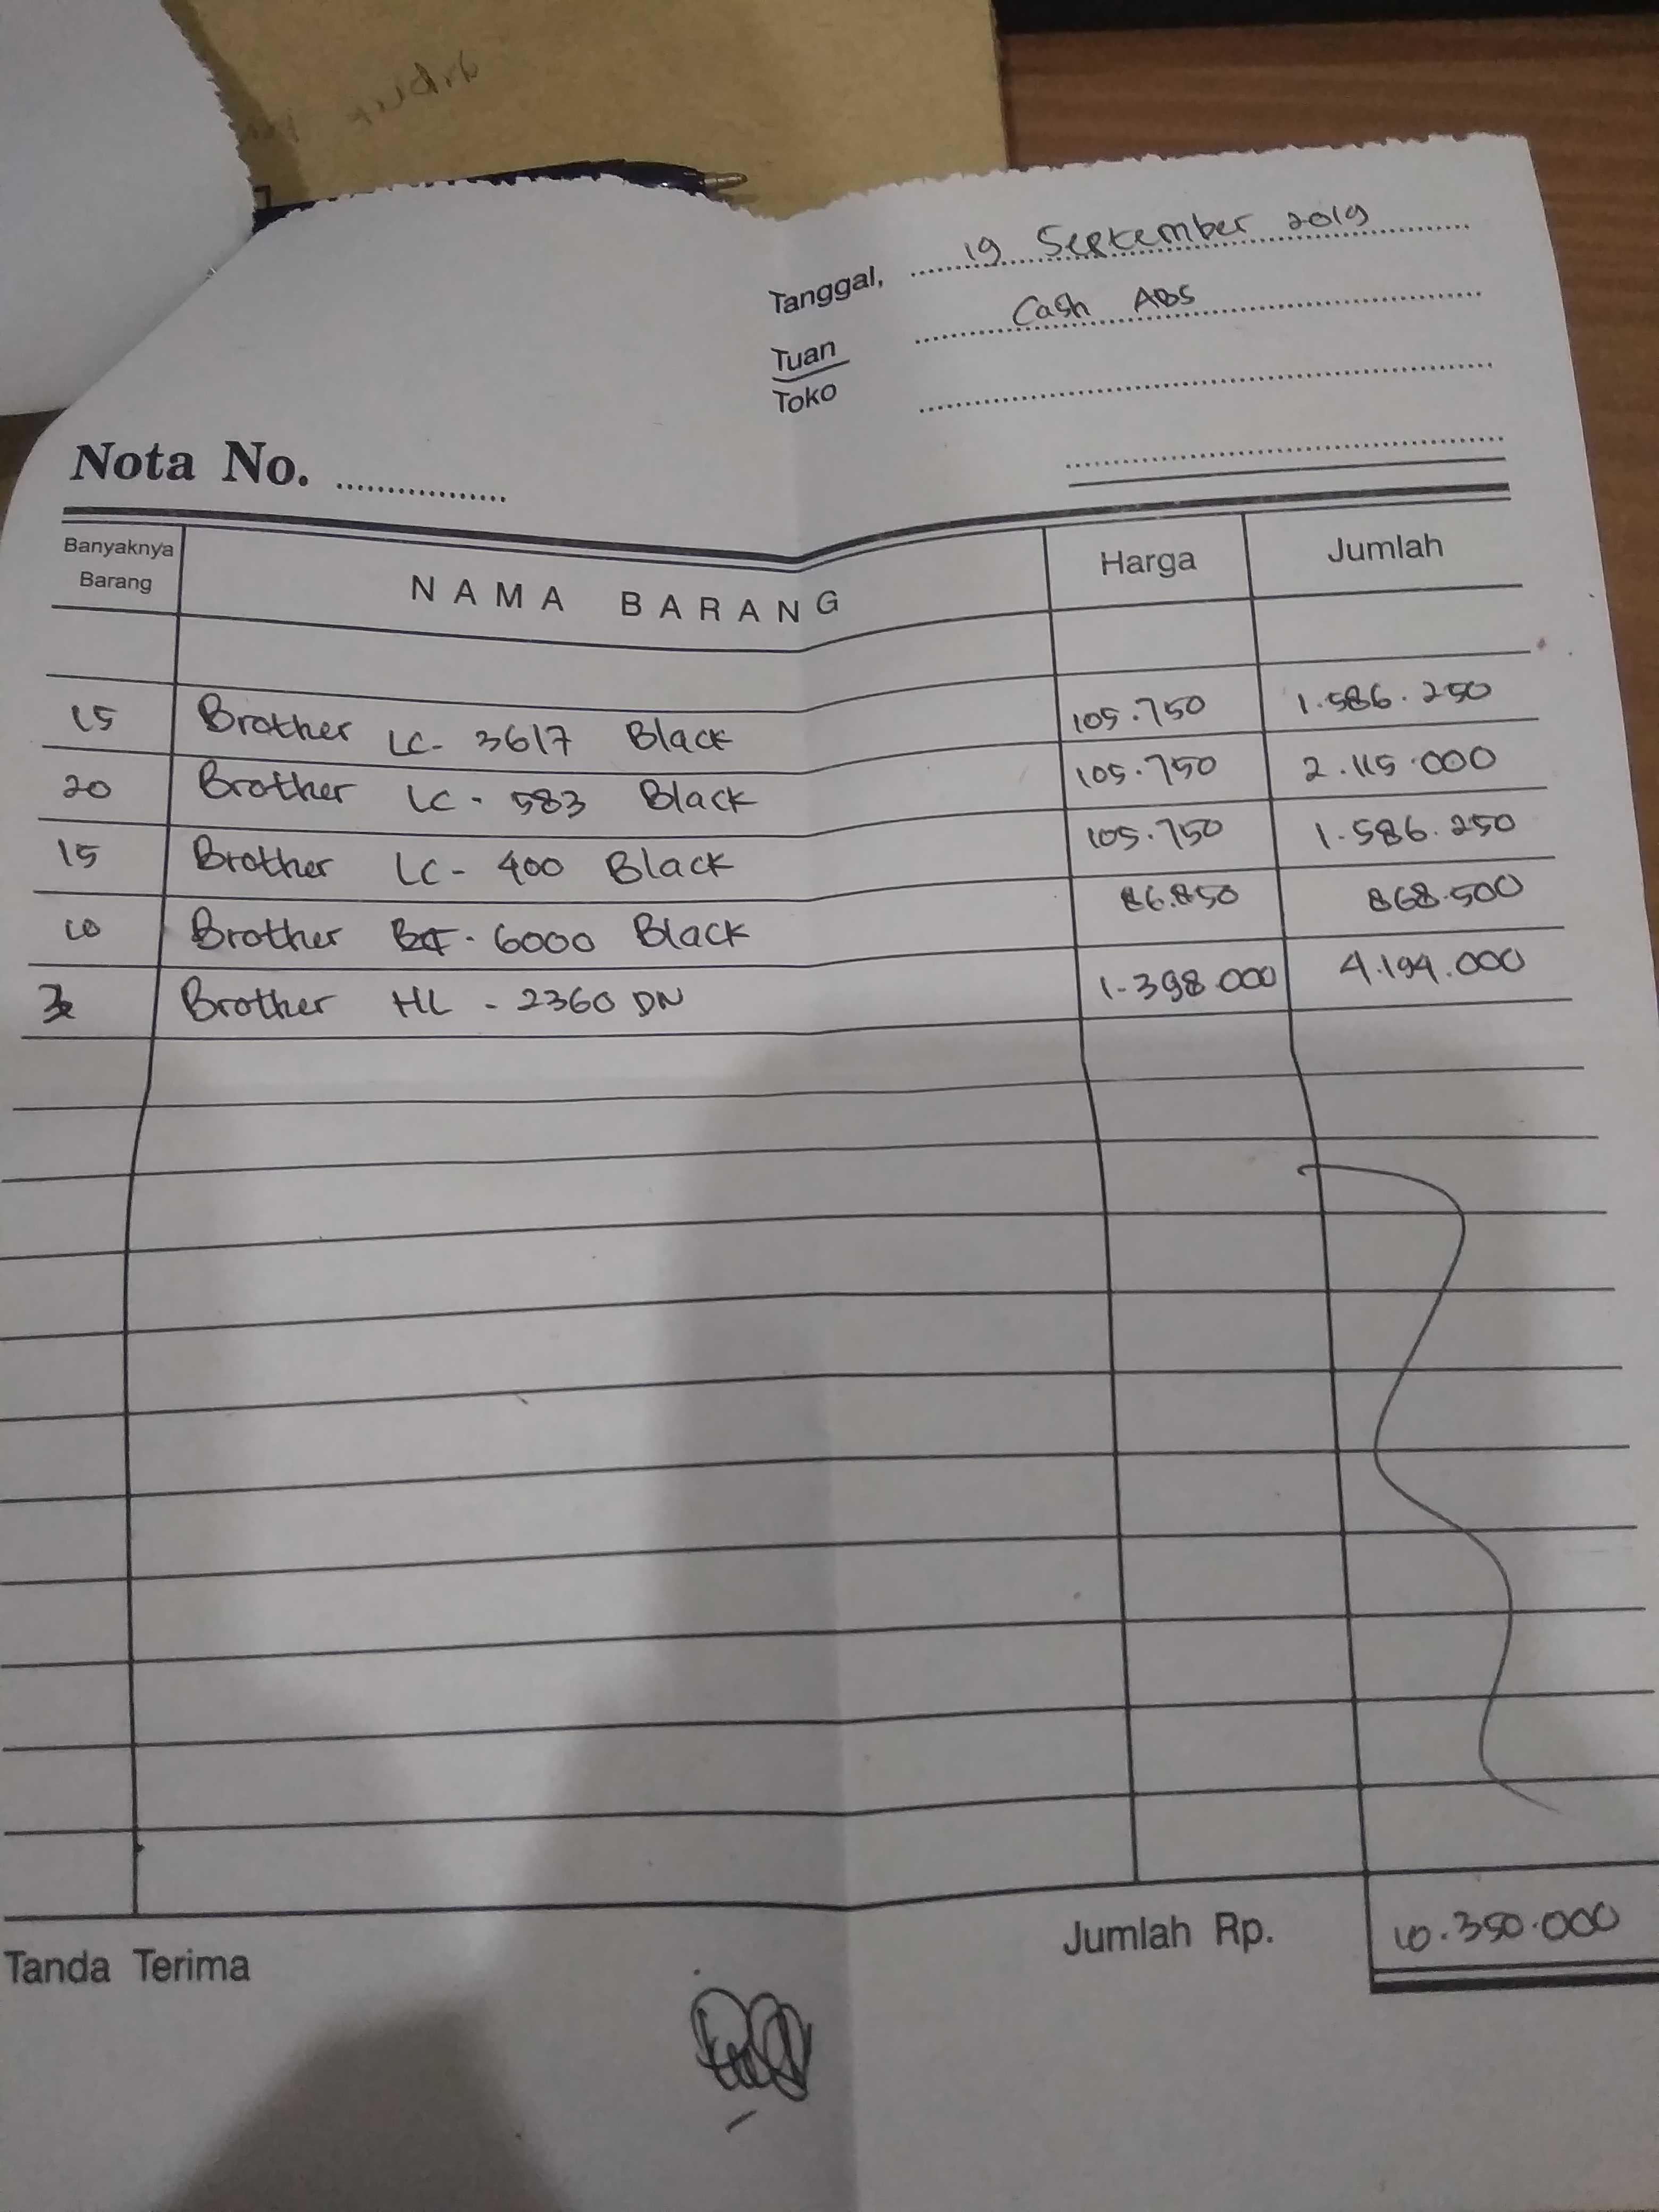 Tanggal, 19 September 2019
Tuan Cash ABS
Toko
Nota No.
Banyaknya Barang NAMA BARANG Harga Jumlah
15 Brother LC- 3617 Black 105.750 1.586.250
20 Brother LC- 583 Black 105.750 2.115.000
15 Brother LC- 400 Black 105.750 1.586.250
10 Brother BT- 6000 Black 86.850 868.500
3 Brother HL - 2360 DN 1.398.000 4.194.000
Jumlah Rp. 10.350.000
Tanda Terima